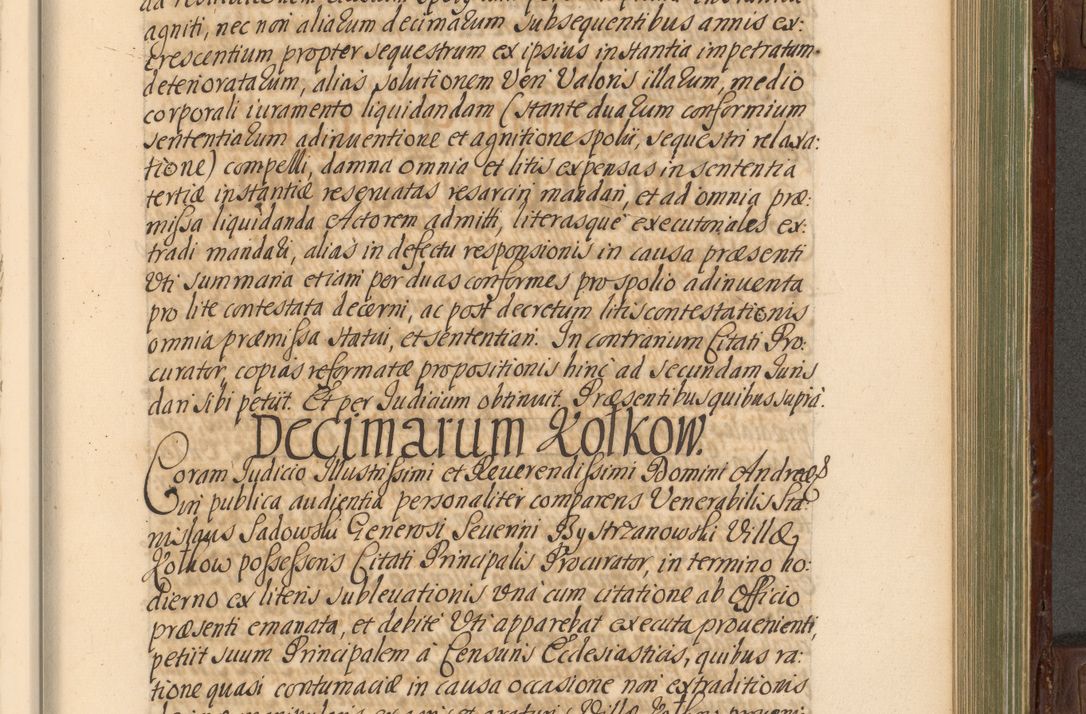 agniti, nec non aliarum decimarum subsequentibus annis ex:
crescentium propter sequestrum ex ipsius instantia impetratum
deterioratarum, alias solutionem veri Valoris illarum, medio
corporali iuramento liquidandam (stante duarum conformium
sententiarum adinuentione et agnitione spolii, sequestri relaxa:
tione) compelli, damna omnia et litis expensas in sententia
tertiæ instantiæ reseruatas resarciri mandari, et ad omnia præ:
missa liquidanda Actorem admitti, literasque executoriales ex:
tradi mandari, alias in defectu responsionis in causa præsenti
Uti summaria etiam per duas conformes pro spolio adinuenta
pro lite contestata decerni, ac post decretum litiscontestationis
omnia præmissa statui, et sententiari. In contrarium Citati Pro:
curator, copias reformatæ propositionis hinc ad secundam Juris
dari sibi petiit. Et per Iudicium obtinuit. Præsentibus quibus supra.
Decimarum Kołkow.
Coram Iudicio Illustrissimi et Reuerendissimi Domini Andreæ
in publica audientia personaliter comparens Venerabilis Sta:
nislaus Sadowski Generosi Seuerini Bystrzanowski Villæ
Kołkow possessoris Citati Principalis Procurator, in termino ho:
dierno ex literis subleuationis una cum citatione ab Officio
præsenti emanata, et debite Uti apparebat executa prouenienti,
petiit suum Principalem a Censuris Ecclesiasticis, quibus ra:
tione quasi contumaciæ in causa occasione non extraditionis